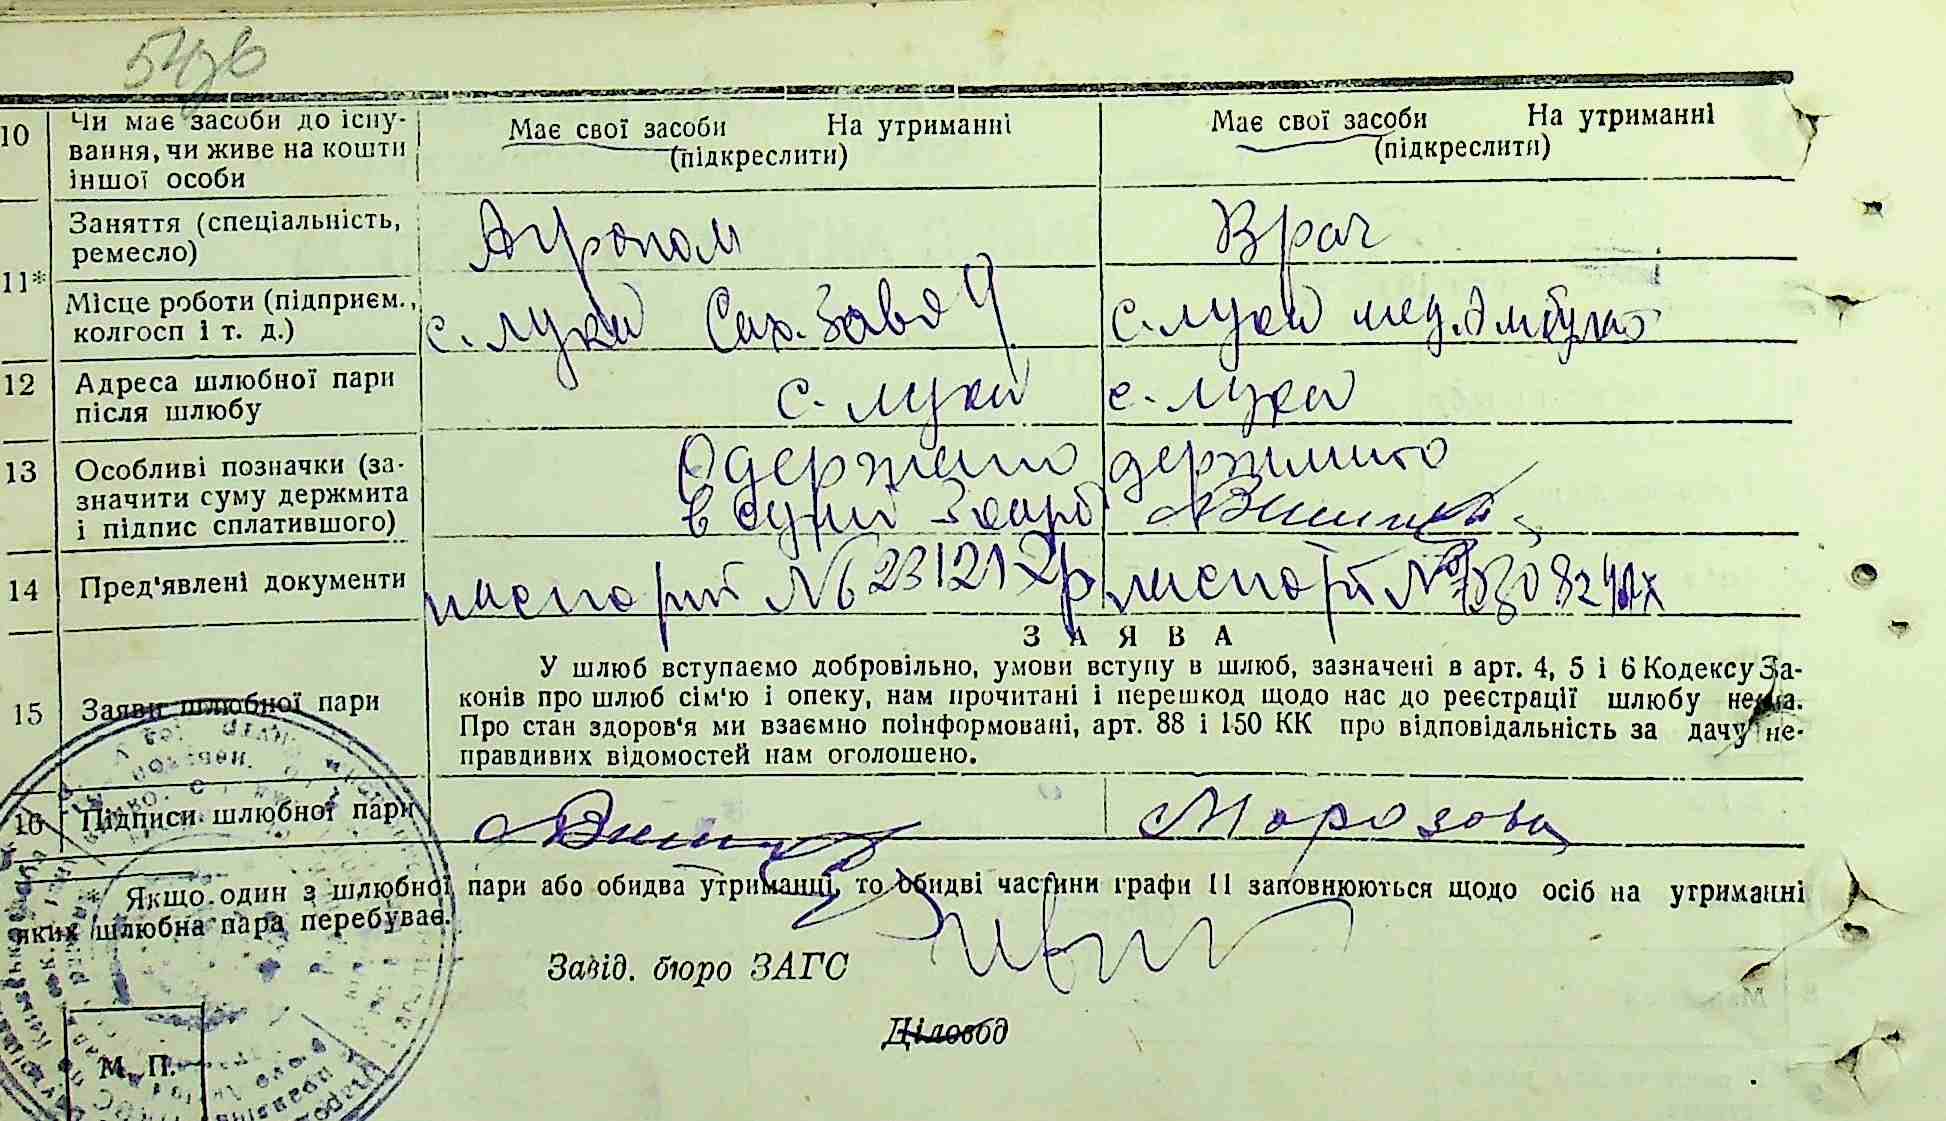 10 Чи має засоби до існу-
вання, чи живе на кошти
іншої особи
Має свої засоби На утриманні
(підкреслити)
Має свої засоби На утриманні
(підкреслити)
11* Заняття (спеціальність,
ремесло)
Агроном
Врач
Місце роботи (підприєм.,
колгосп і т. д.)
с. Луки Сах. Завод
с. Луки мед. Амбулат
12 Адреса шлюбної пари
після шлюбу
с. Луки
с. Луки
13 Особливі позначки (за-
значити суму держмита
і підпис сплатившого)
Одержано держмито
в сумі 3 карб
14 Пред'явлені документи
паспорт № 231212
паспорт №
15 Заяви шлюбної пари
ЗАЯВА
У шлюб вступаємо добровільно, умови вступу в шлюб, зазначені в арт. 4, 5 і 6 Кодексу За-
конів про шлюб сім'ю і опеку, нам прочитані і перешкод щодо нас до реєстрації шлюбу нема.
Про стан здоров'я ми взаємно поінформовані, арт. 88 і 150 КК про відповідальність за дачу не-
правдивих відомостей нам оголошено.
16 Підписи шлюбної пари
Морозова
* Якщо один з шлюбної пари або обидва утриманці, то обидві частини графи 11 заповнюються щодо осіб на утриманні
яких шлюбна пара перебуває.
Завід. бюро ЗАГС
Діловод
М. П.